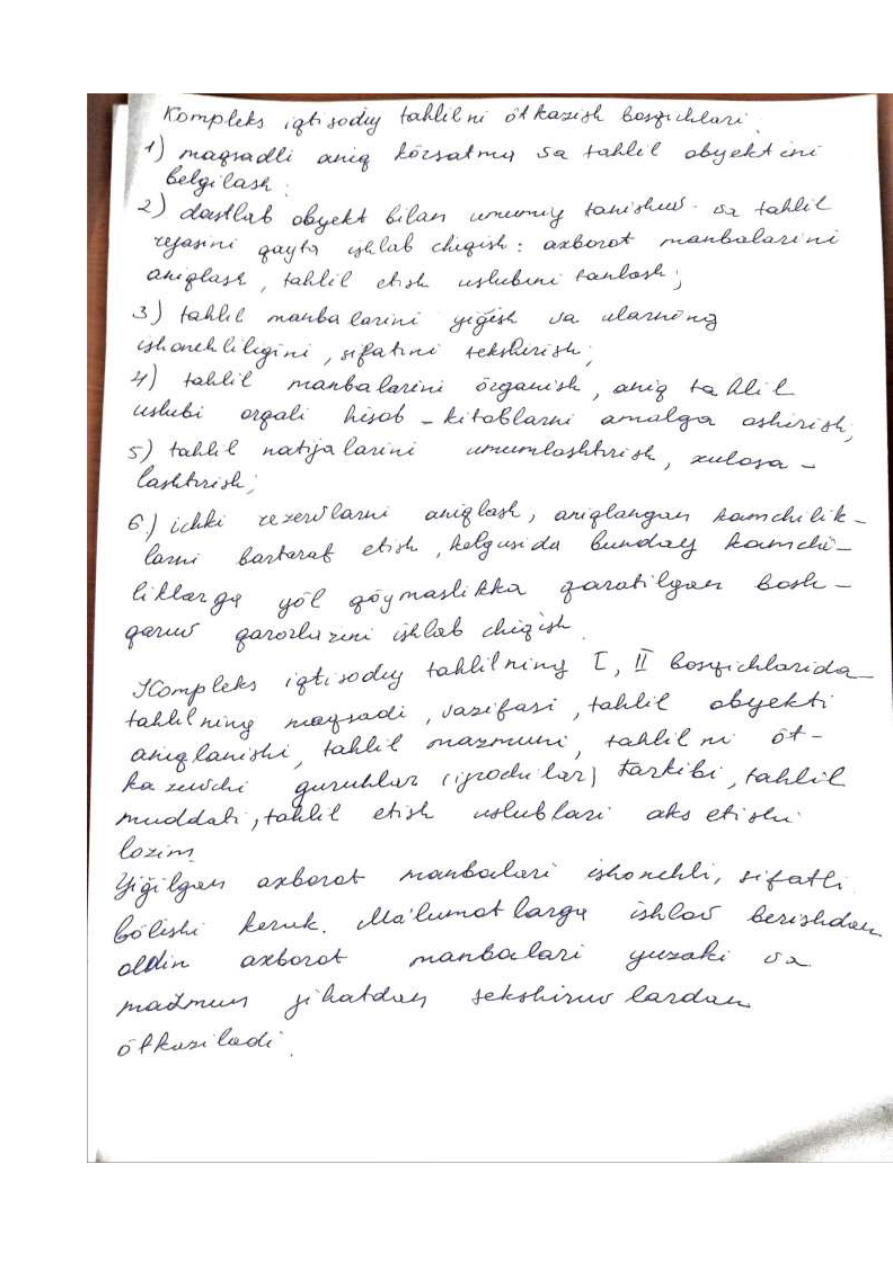 Kompleks iqtisodiy tahlilni ōtkazish bosqichlari.
1) maqsadli aniq kōrsatmq va tahlil obyektini
belgilash:
2) dastlab obyekt bilan umumiy tanishuv va tahlil
rejasini qayta ishlab chiqish: axborot manbalarini
aniqlash, tahlil etish uslubini tanlash;
3) tahlil manbalarini yiğish va ularning
ishonchliligini, sifatini tekshirish;
4) tahlil manbalarini ōrganish, aniq tahlil
uslubi orqali hisob-kitoblarni amalga oshirish;
5) tahlil natijalarini umumlashtirish, xulosa-
lashtirish;
6) ichki rezervlarni aniqlash, aniqlangan kamchilik-
larni bartaraf etish, kelgusida bunday kamchi-
liklarga yōl qōymaslikka qaratilgan bosh-
qaruv qarorlarini ishlab chiqish.
Kompleks iqtisodiy tahlilning I, II bosqichlarida
tahlilning maqsadi, vazifasi, tahlil obyekti
aniqlanishi, tahlil mazmuni, tahlilni ōt-
kazuvchi guruhlar (ijrochilar) tarkibi, tahlil
muddati, tahlil etish uslublari aks etishi
lozim.
Yiğilgan axborot manbalari ishonchli, sifatli
bōlishi kerak. Ma'lumotlarga ishlov berishdan
oldin axborot manbalari yuzaki va
mazmun jihatdan tekshiruvlardan
ōtkaziladi.